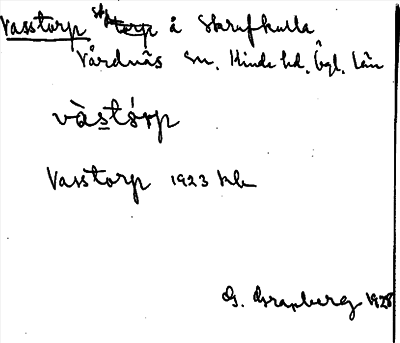 Vasstorp torp å Skrufkulla
Vårdnäs sn. Kinda hd. Ögl. Län
vàstórp
Vasstorp 1923
G. Granberg 1928